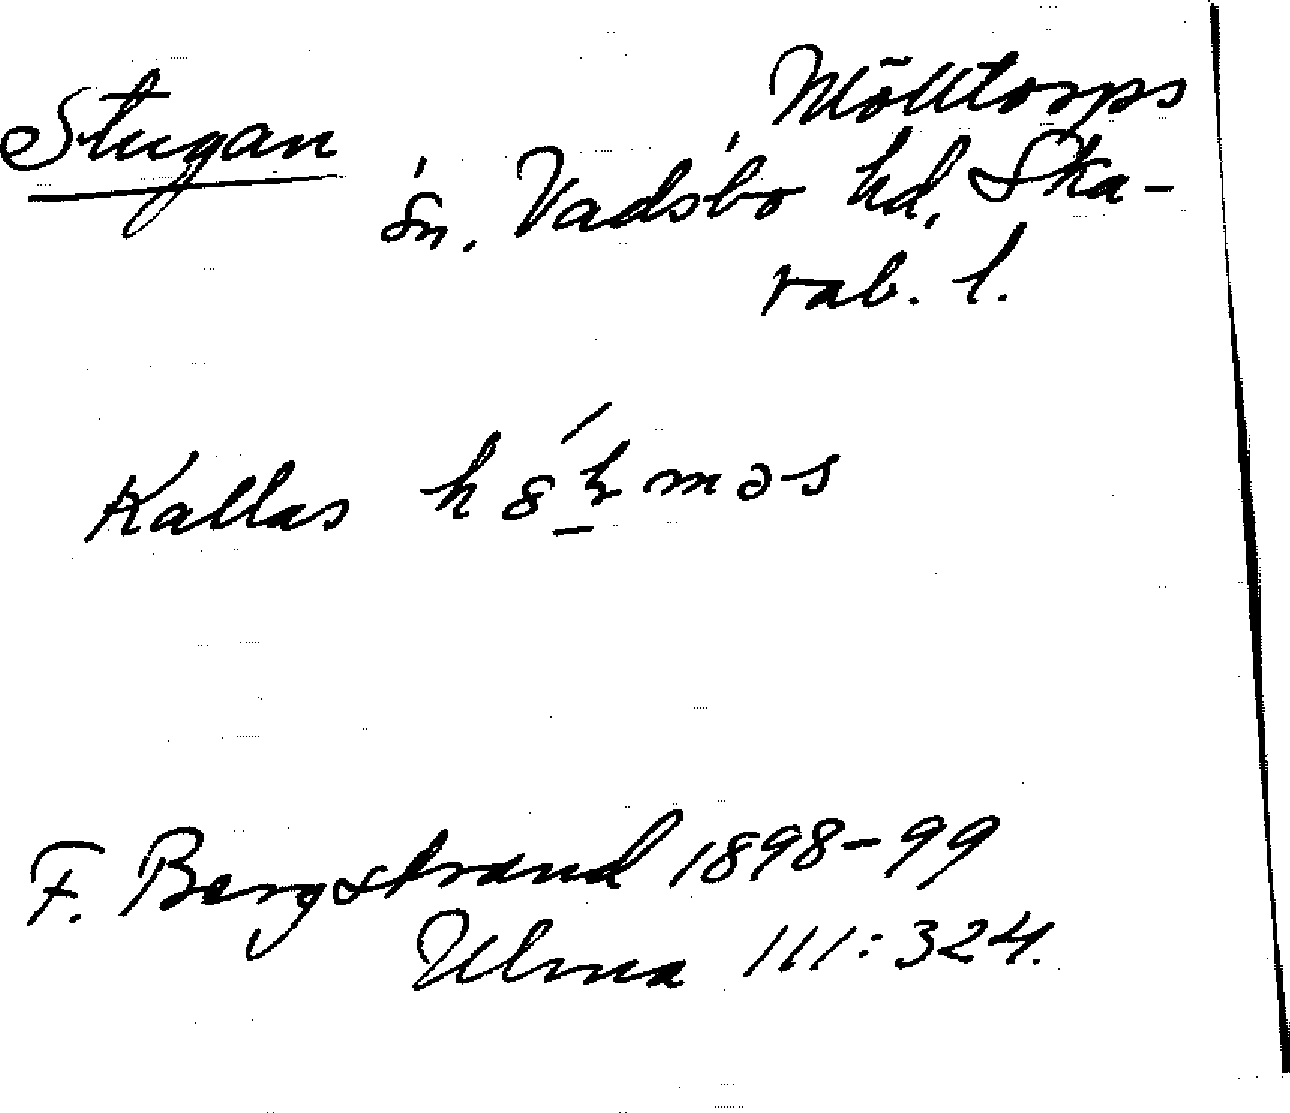 Stugan
Mölltorps
sn. Vadsbo hd, Ska-
rab. l.
Kallas
F. Bergstrand 1898-99
Ulma 111:324.